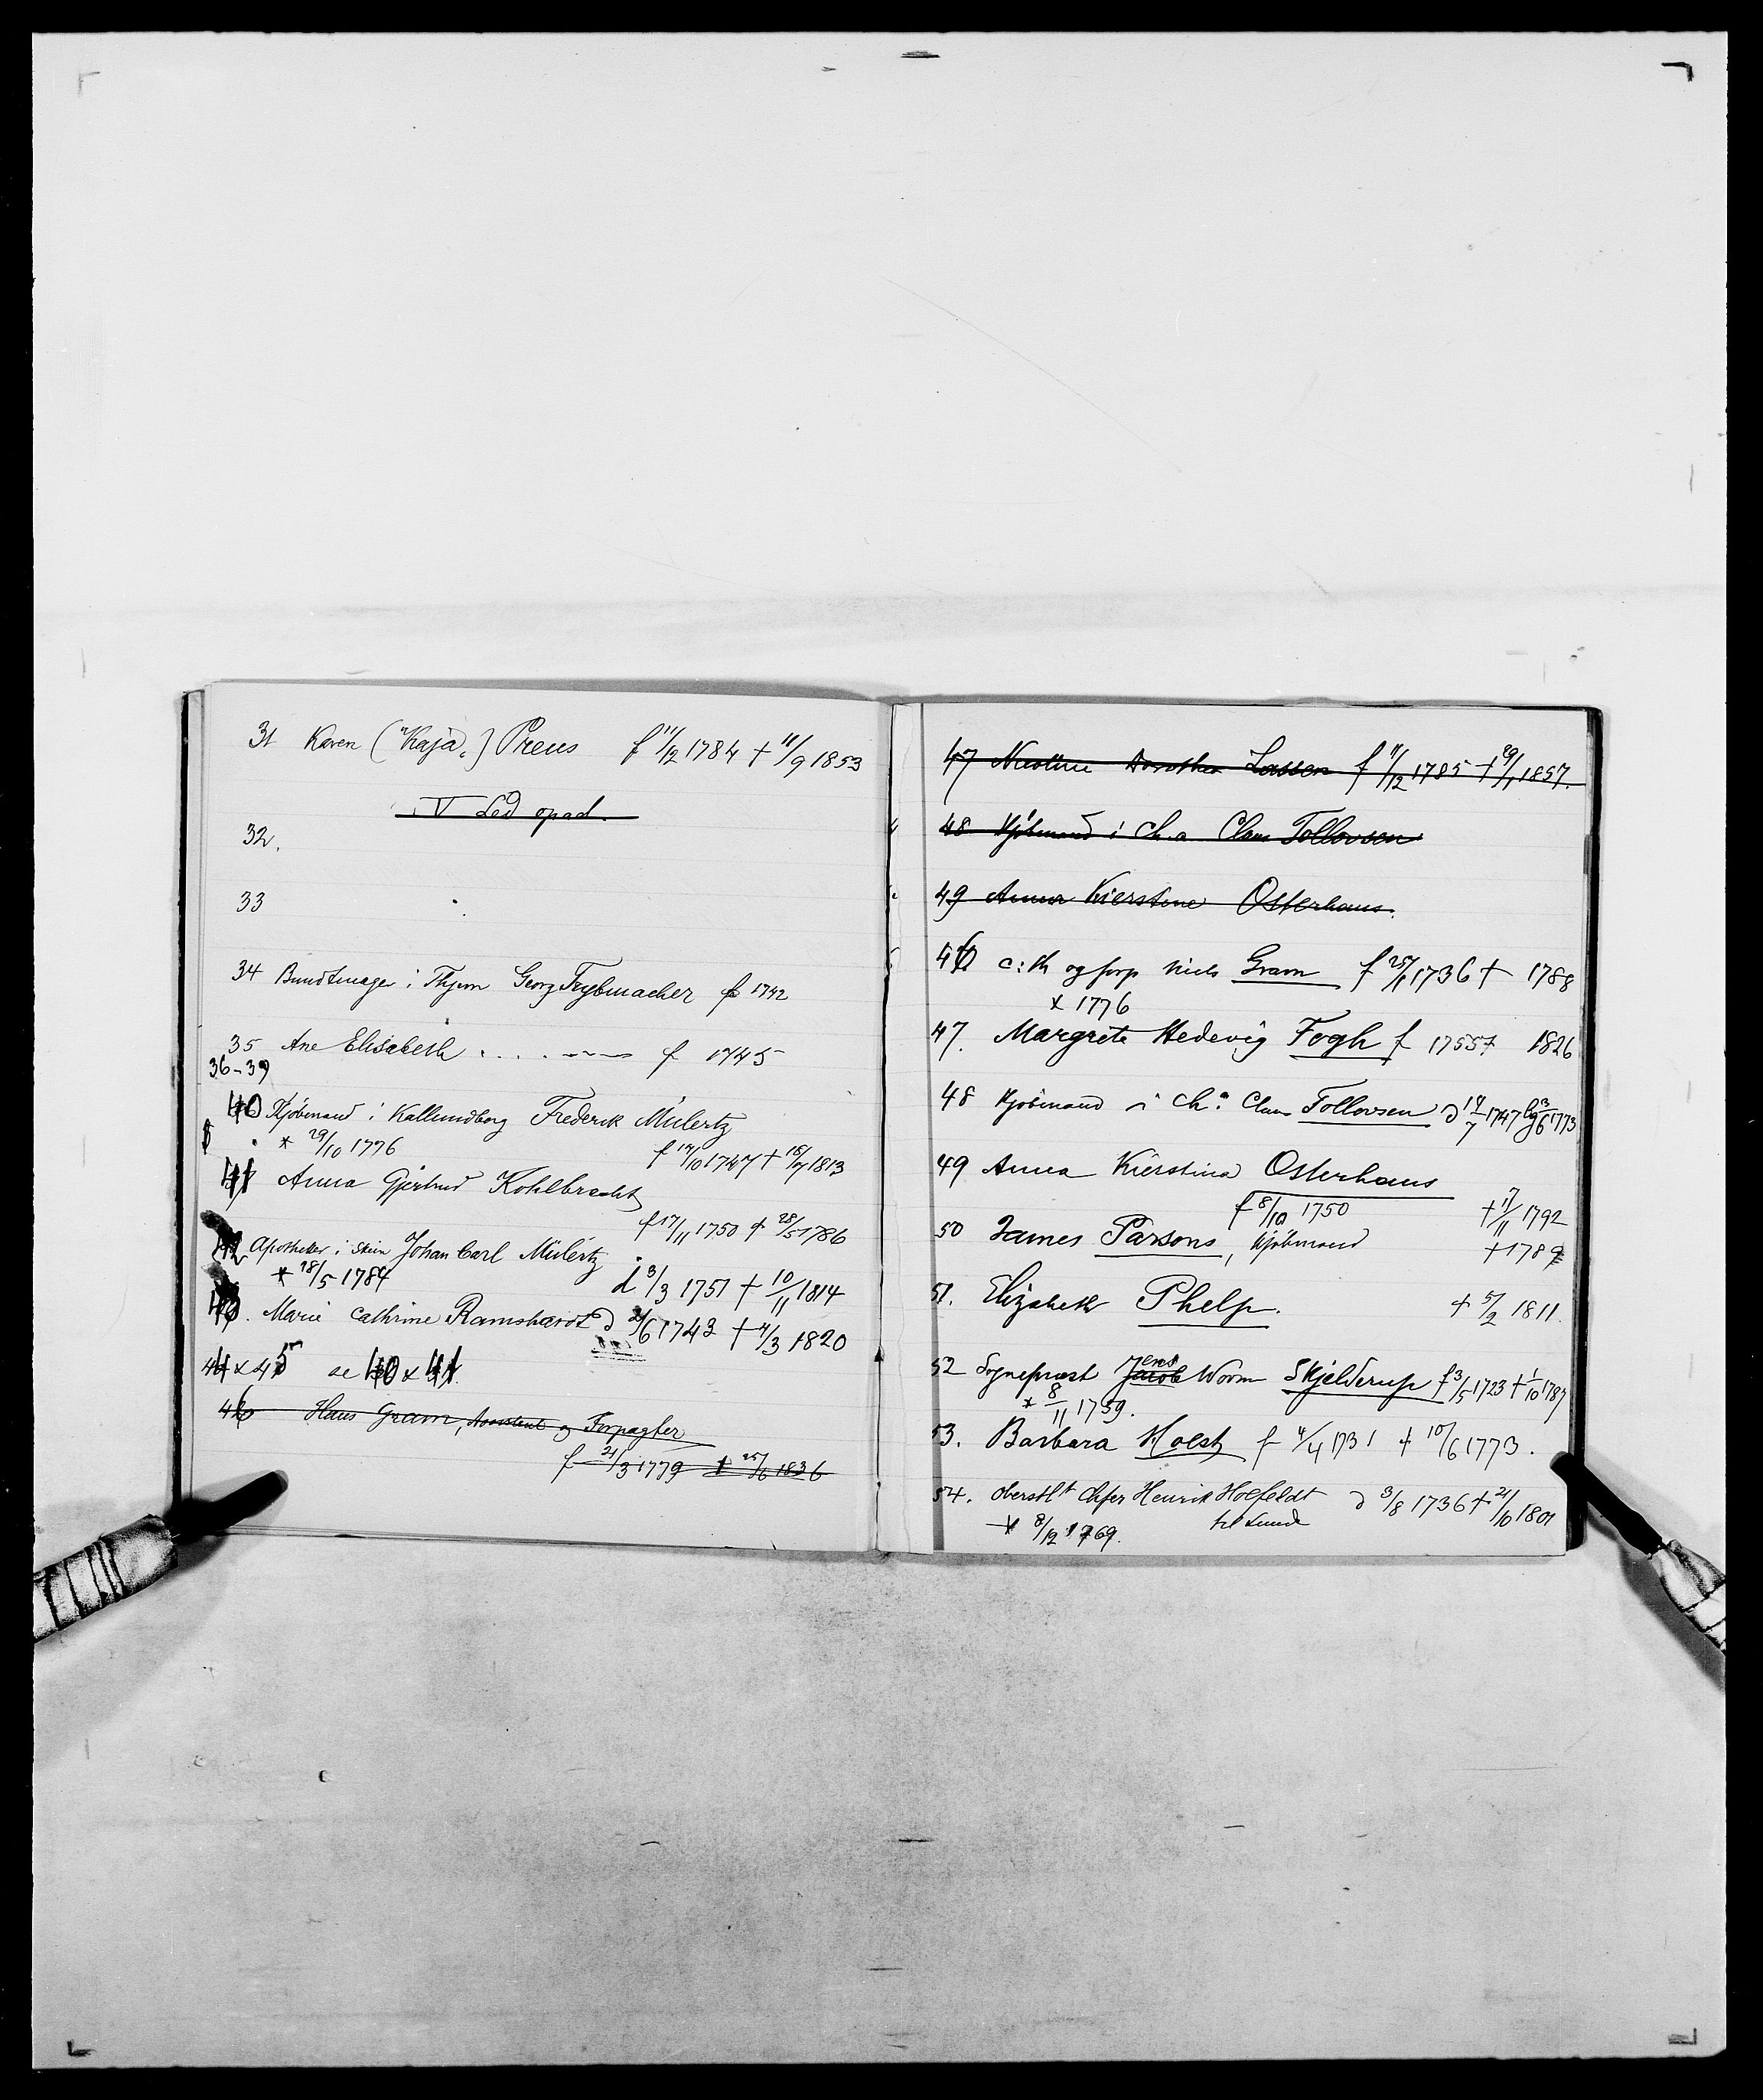 31 Karen ("Kaja") Preus f 11/12 1784 † 11/9 1853
V Led opad.
32.
33
34 Bundtmager i Thjem Georg Frybmacher f 1742
35 Ane Elisabeth . . . . - - - f 1745
36-39
40 Kjöbmand i Kallundborg Frederik Mülertz
* 29/10 1776 f 17/10 1747 † 16/7 1813
41 Anna Gjertrud Kohlbrecht
f 17/11 1750 † 28/5 1786
42 Apotheker i Skien Johan Carl Mülertz
* 18/5 1784 d 3/3 1751 † 10/11 1814
43. Marie Cathrine Ramshardt d /6 1743 † 4/3 1820
44 x 45 se 40 x 41
46 Hans Gram, Assistent og Forpagter
f 21/3 1779 † 25/6 1836
47 Nicoline Dorothea Lassen f 11/12 1785 † 29/1 1857.
48 Kjöbmand i Ch.a Claus Tollovsen
49 Anna Kierstine Osterhaus.
46 c: th og forp Niels Gram f 25/1 1736 † 1788
* 1776
47. Margrete Hedevig Fogh f 1755 † 1826
48 Kjöbmand i Ch.a Claus Tollovsen d 14/7 1747 bg 3/6 1773
49 Anna Kierstina Osterhaus
f 8/10 1750 † 17/11 1792
50 James Parsons, Kjöbmand † 1789
51. Elizabeth Phelp. † 5/2 1811.
52 Sogneprest Jacob Jens Worm Skjelderup f 3/5 1723 † 1/10 1787
* 8/11 1759.
53. Barbara Holst f 4/4 1731 † 10/6 1773.
54. Oberstlt Chfer Henrik Hoefeldt d 3/8 1736 † 21/10 1801
* 8/12 1769. til Lunde